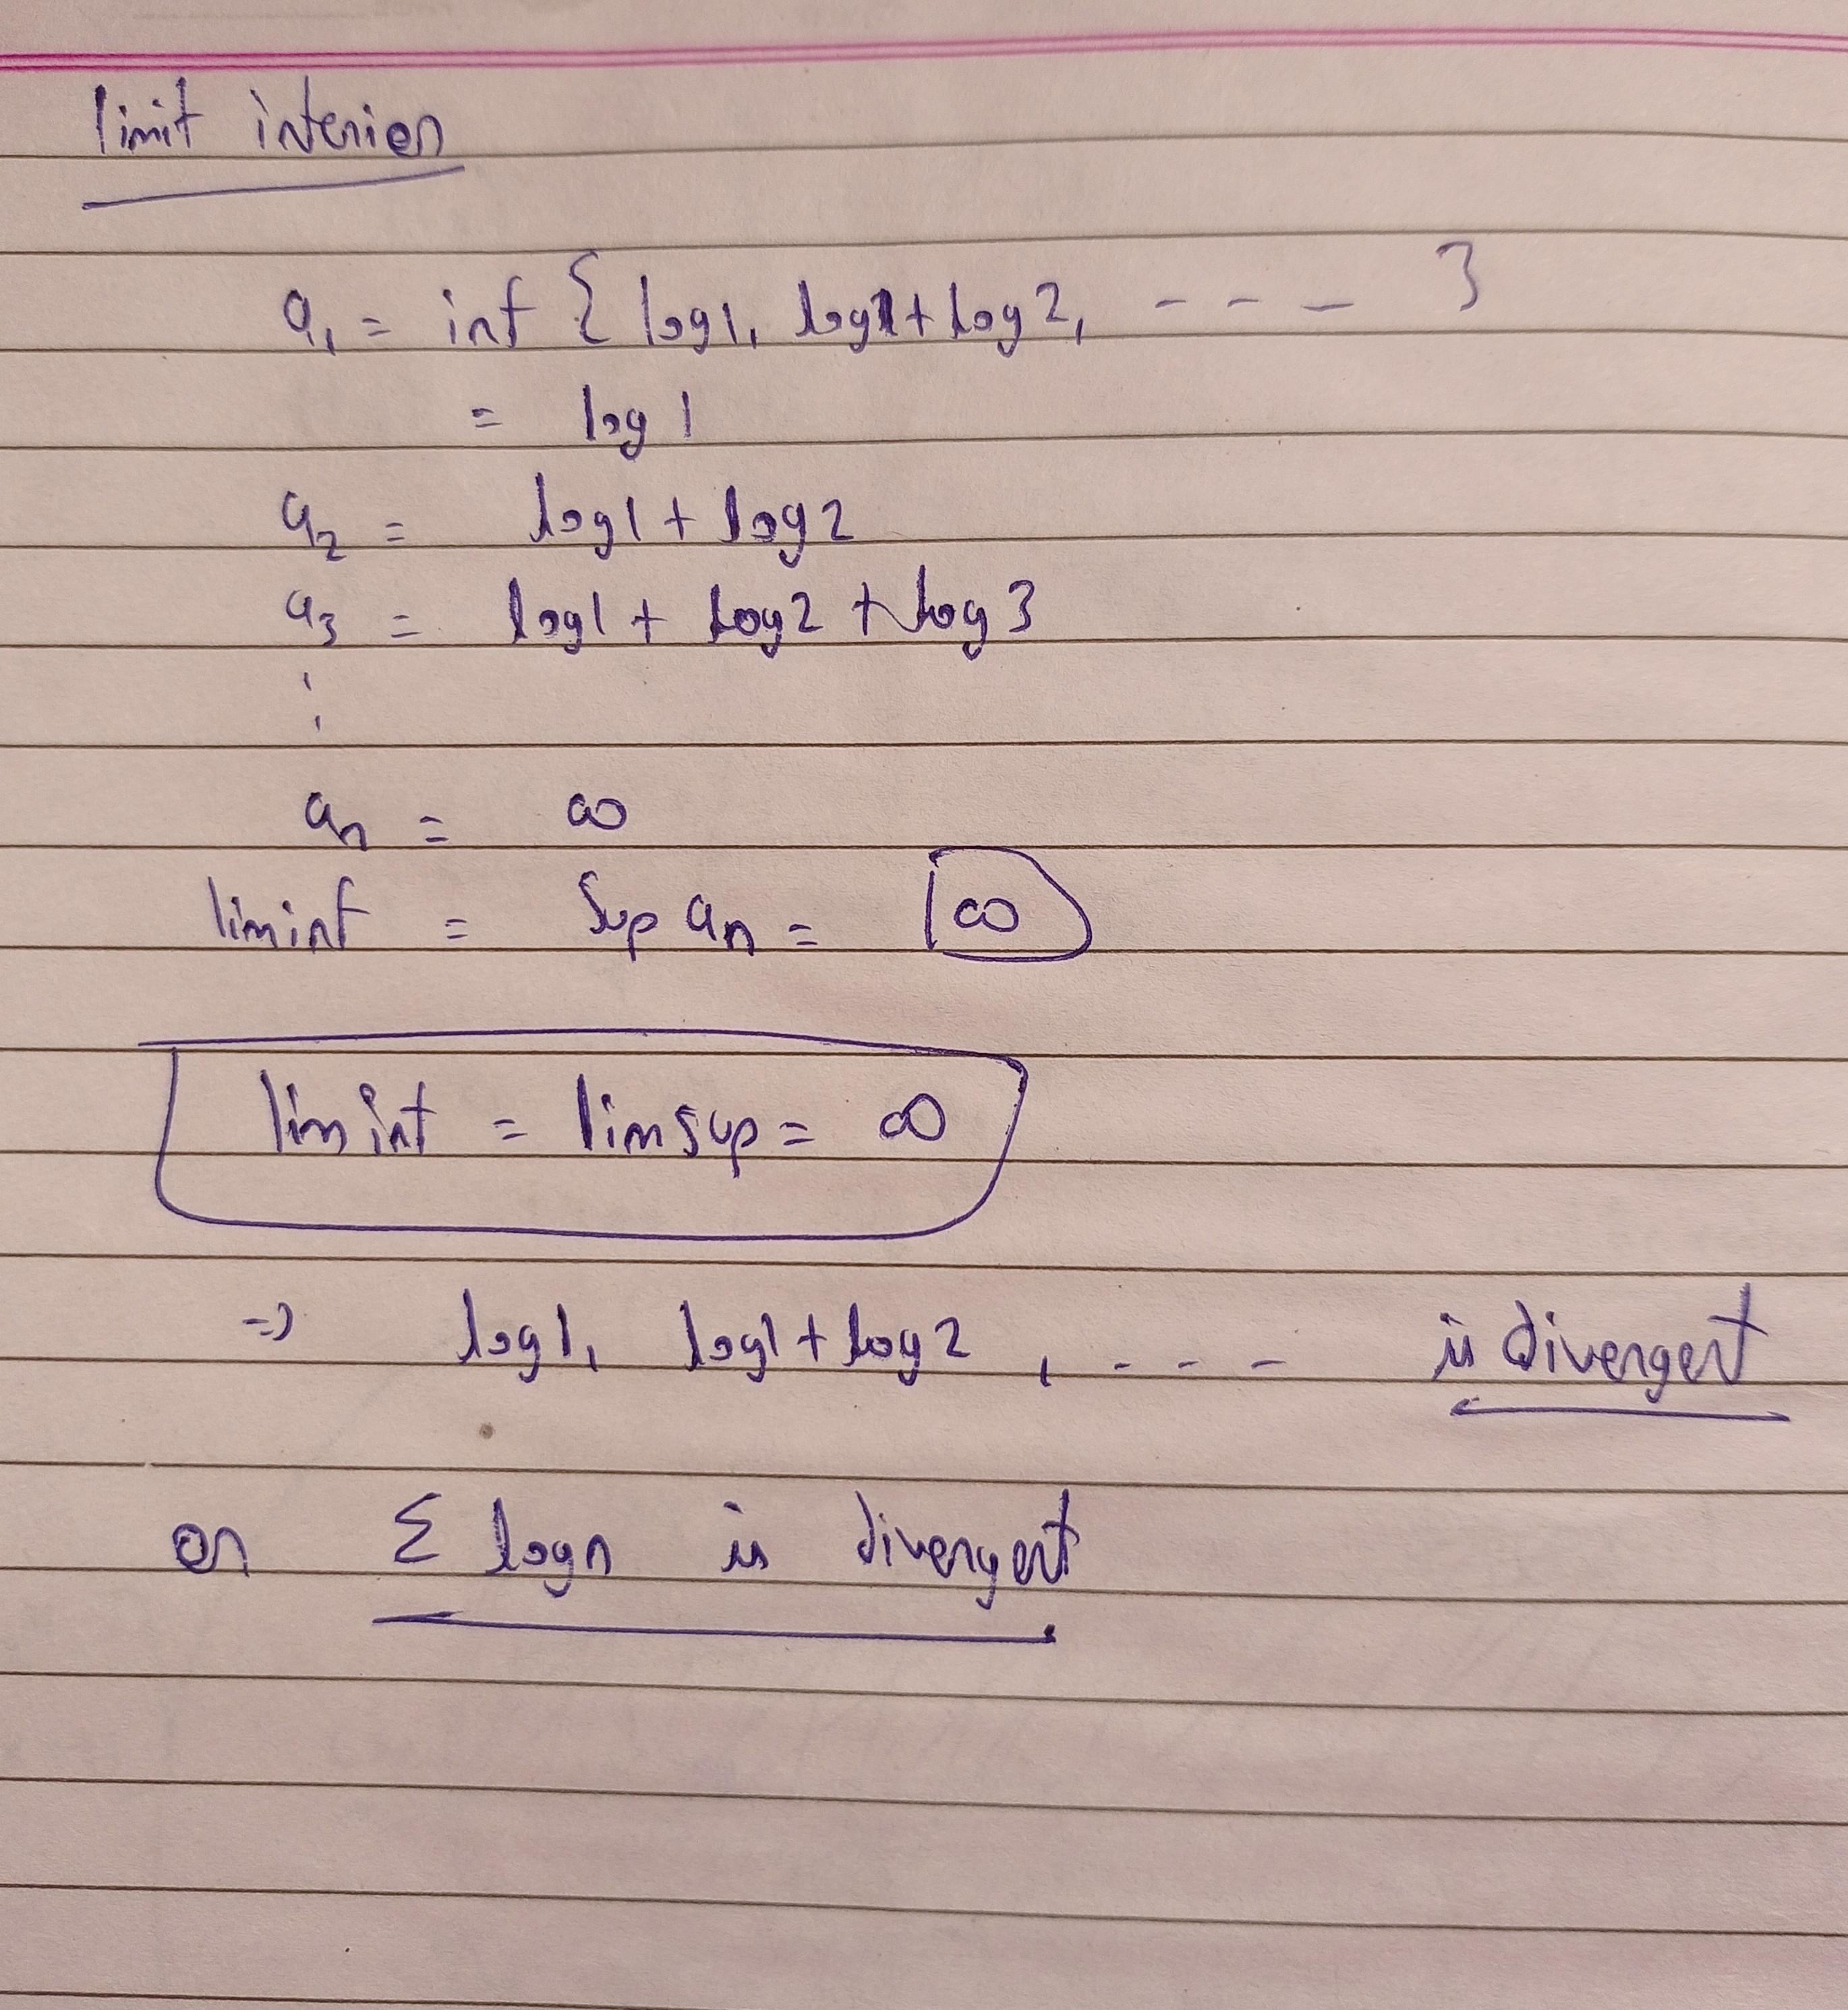 limit interior
a₁ = inf { log1, log1+log2, - - - }
= log 1
a₂ = log1 + log2
a₃ = log1 + log2 + log3
⋮
aₙ = ∞
liminf = Sup aₙ = ∞
lim inf = lim sup = ∞
=> log1, log1+log2, - - - is divergent
or Σ logn is divergent